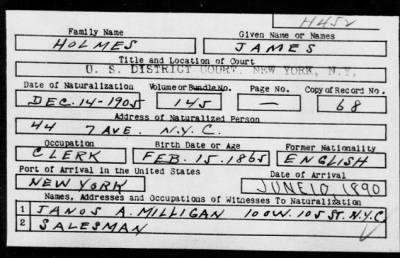 H452
Family Name Given Name or Names
HOLMES JAMES
Title and Location of Court
U. S. DISTRICT COURT, NEW YORK, N.Y.
Date of Naturalization Volume or Bundle No. Page No. Copy of Record No.
DEC. 14-1905 145 — 68
Address of Naturalized Person
44 7 AVE. N.Y.C.
Occupation Birth Date or Age Former Nationality
CLERK FEB. 15. 1865 ENGLISH
Port of Arrival in the United States Date of Arrival
NEW YORK JUNE 10, 1890
Names, Addresses and Occupations of Witnesses To Naturalization
1 JANOS A. MILLIGAN 100 W. 105 ST. N.Y.C.
2 SALESMAN